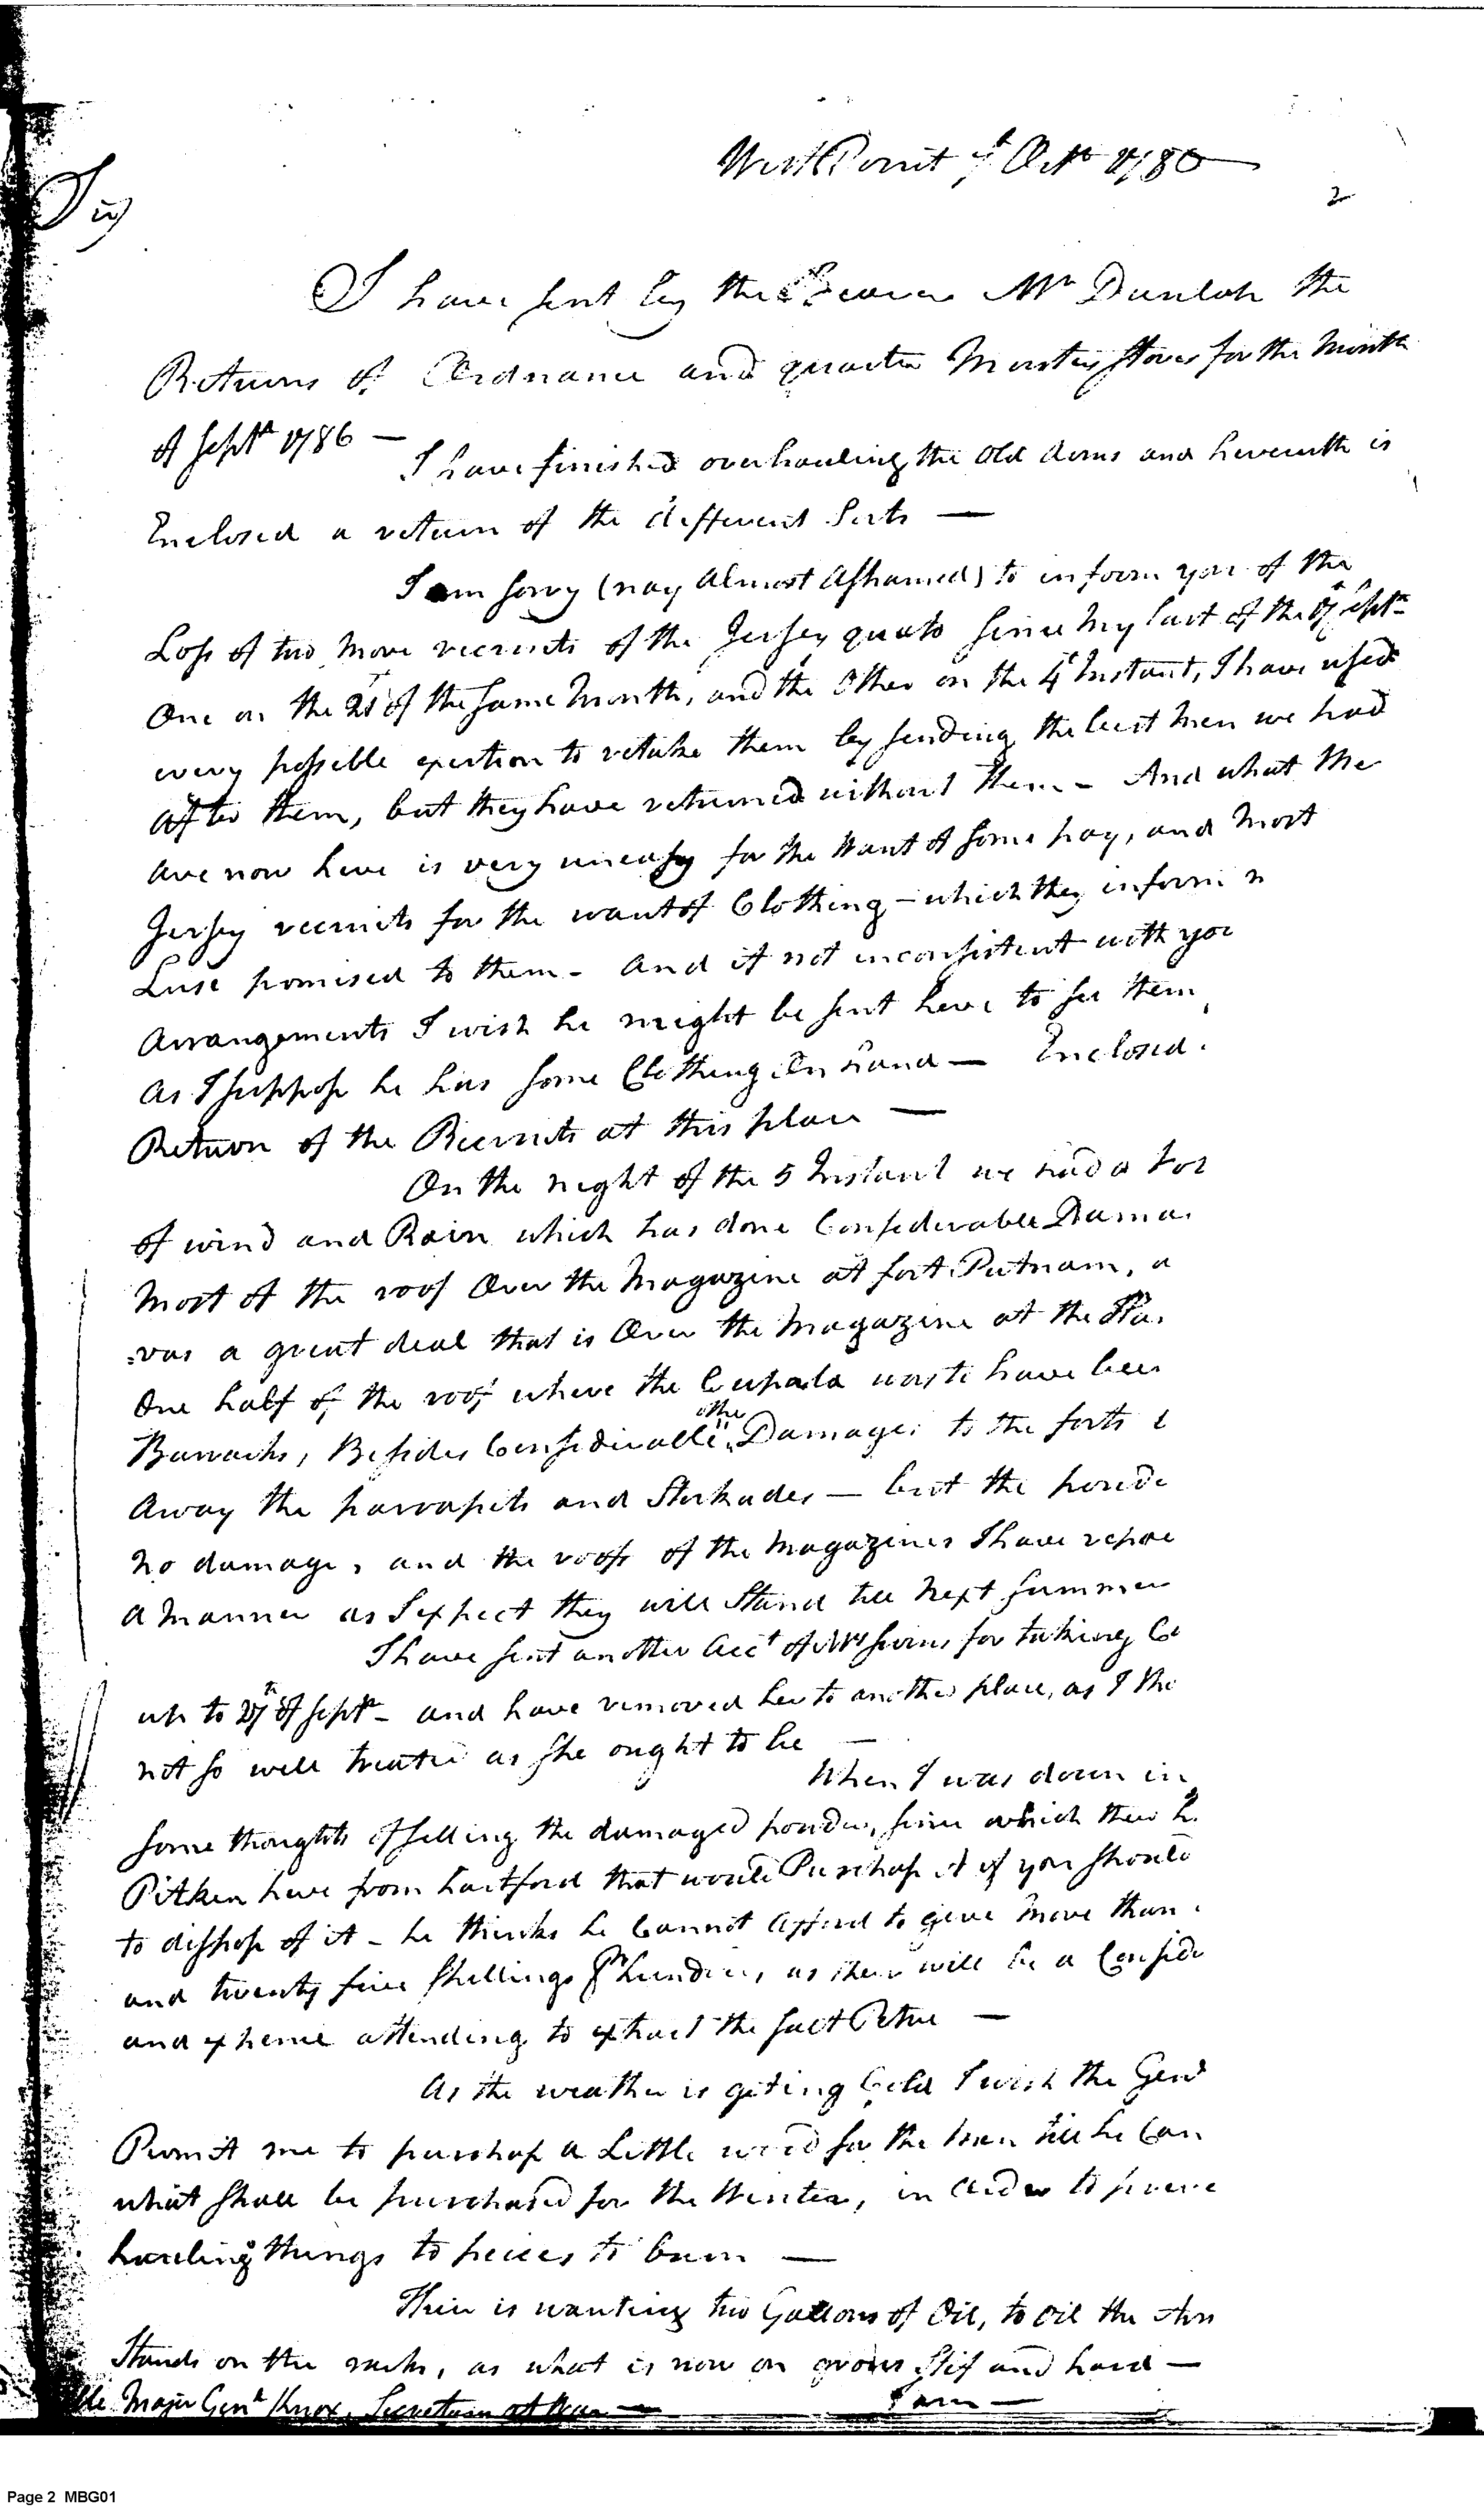 West Point 7th Octr 1786
2
Sir
I have sent by the Bearer Mr Dunlop the
Returns of Ordnance and quarter Masters Stores for the Month
of Septr 1786 —
I have finished overhauling the Old Arms and herewith is
Enclosed a return of the different Sorts —
I am sorry (nay almost Ashamed) to inform you of the
Loss of two more recruits of the Jersey quato Since My last of the 17th Septr
One on the 21st of the same Month, and the Other on the 4th Instant, I have used
every possible exertion to retake them by sending the best Men we had
after them, but they have returned without them - And what Me
are now here is very uneasy for the Want of some pay, and Most
Jersey recruits for the want of Clothing - which they inform
Luse promised to them - and if not inconsistent with you
Arrangements I wish he might be sent here to see them
as I suppose he has some Clothing On hand — Enclosed
Return of the Recruits at this place —
On the night of the 5 Instant we had a Tor
of wind and Rain which has done Considerable Dama
Most of the roof Over the Magazine at fort Putnam, a
=ver a great deal that is Over the Magazine at the
One half of the roof where the Cupala was to have been
Barracks, Besides Considerable other Damages to the forts
Away the parrapits and Stockades — but the powde
no damage, and the roofs of the Magazines I have repa
a Manner as I expect they will Stand till Next Summer
I have sent another Acct of Mrs for taking Ca
up to 27th of Septr - and have removed her to another place, as I tho
not so well treated as she ought to be —
When I was down in
some thoughts of selling the damaged powder, since which there
Pitken here from hartford that would Purchase it if you should
to dispose of it - he thinks he Cannot afford to give More than
and twenty five Shillings Pr hundred, as there will be a Conside
and expence attending to extract the salt Petre —
As the weather is geting Cold I wish the Genl
Permit me to purchase a Little wood for the Men till he Can
what shall be purchased for the Winter, in Order to preve
hauling things to peices to burn —
There is wanting two Gallons of Oil, to Oil the Arm
Stands on the racks, as what is now on grows stif and hard —
I am —
ble Major Genl Knox, Secretary at War —
Page 2 MBG01